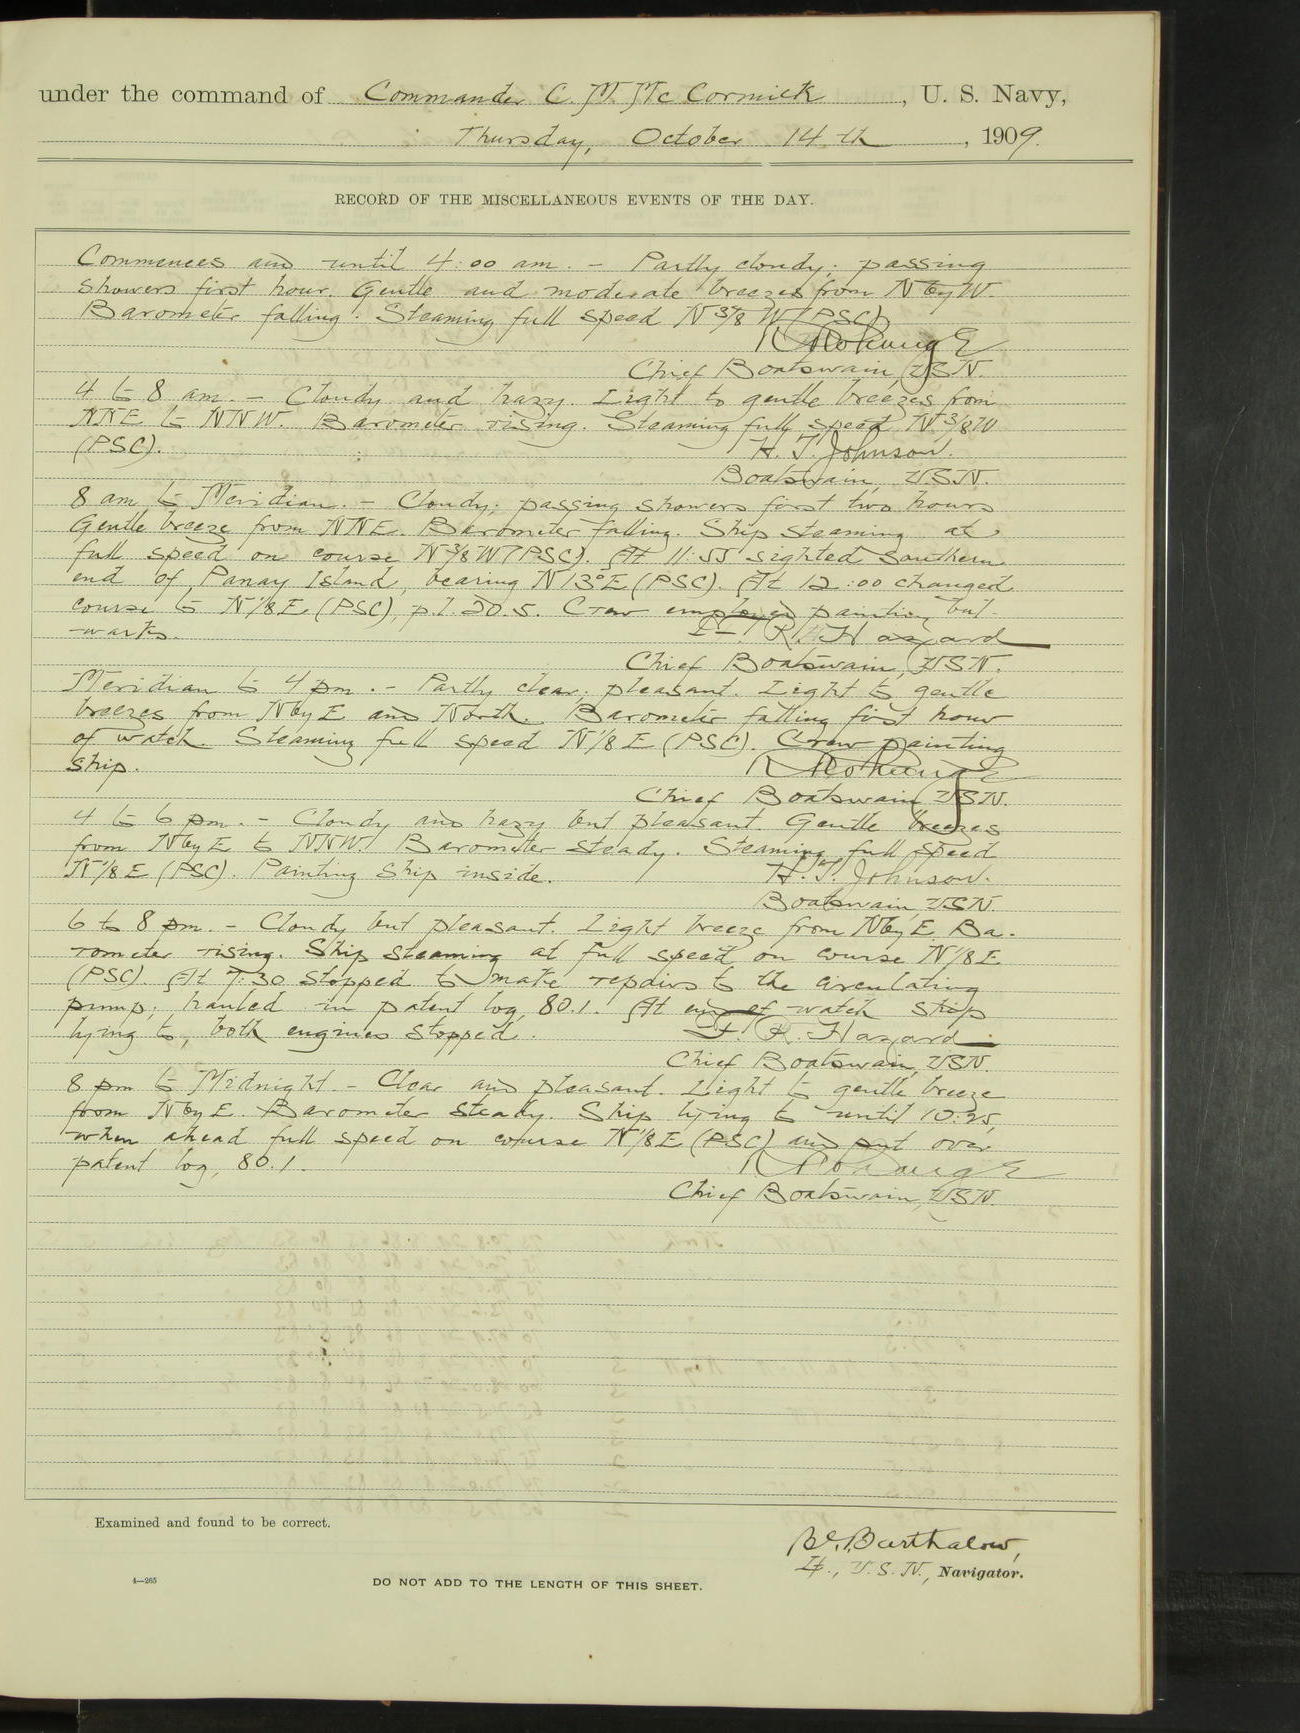 under the command of Commander C. M. McCormick, U. S. Navy,
Thursday, October 14th, 1909.
RECORD OF THE MISCELLANEOUS EVENTS OF THE DAY.
Commences and until 4:00 am. - Partly cloudy; passing
showers first hour. Gentle and moderate breezes from N by W.
Barometer falling. Steaming full speed N 3/8 W (PSC).
Chief Boatswain, USN.
4 to 8 am. - Cloudy and hazy. Light to gentle breezes from
NNE to NNW. Barometer rising. Steaming full speed N 3/8 W
(PSC). H. T. Johnson.
Boatswain, USN.
8 am to Meridian. - Cloudy; passing showers first two hours
Gentle breeze from NNE. Barometer falling. Ship steaming at
full speed on course N 3/8 W (PSC). At 11:55 sighted Southern
end of Panay Island, bearing N 13° E (PSC). At 12:00 changed
course to N 1/8 E (PSC), p.l. 20.5. Crew employed painting bul-
warks. F. R. Hazard
Chief Boatswain, USN.
Meridian to 4 pm. - Partly clear; pleasant. Light to gentle
breezes from N by E and North. Barometer falling first hour
of watch. Steaming full speed N 1/8 E (PSC). Crew painting
ship.
Chief Boatswain USN.
4 to 6 pm. - Cloudy and hazy but pleasant. Gentle breezes
from N by E to NNW. Barometer steady. Steaming full speed
N 1/8 E (PSC). Painting ship inside. H. T. Johnson.
Boatswain, USN.
6 to 8 pm. - Cloudy but pleasant. Light breeze from N by E. Ba-
rometer rising. Ship steaming at full speed on course N 1/8 E
(PSC). At 7:30 stopped to make repairs to the circulating
pump; hauled in patent log, 80.1. At end of watch ship
lying to, both engines stopped. F. R. Hazard
Chief Boatswain, USN.
8 pm to Midnight. - Clear and pleasant. Light to gentle breeze
from N by E. Barometer steady. Ship lying to until 10:25,
when ahead full speed on course N 1/8 E (PSC) and put over
patent log, 80.1.
Chief Boatswain, USN.
Examined and found to be correct.
Barthalow,
Lt., U.S.N., Navigator.
4—265
DO NOT ADD TO THE LENGTH OF THIS SHEET.